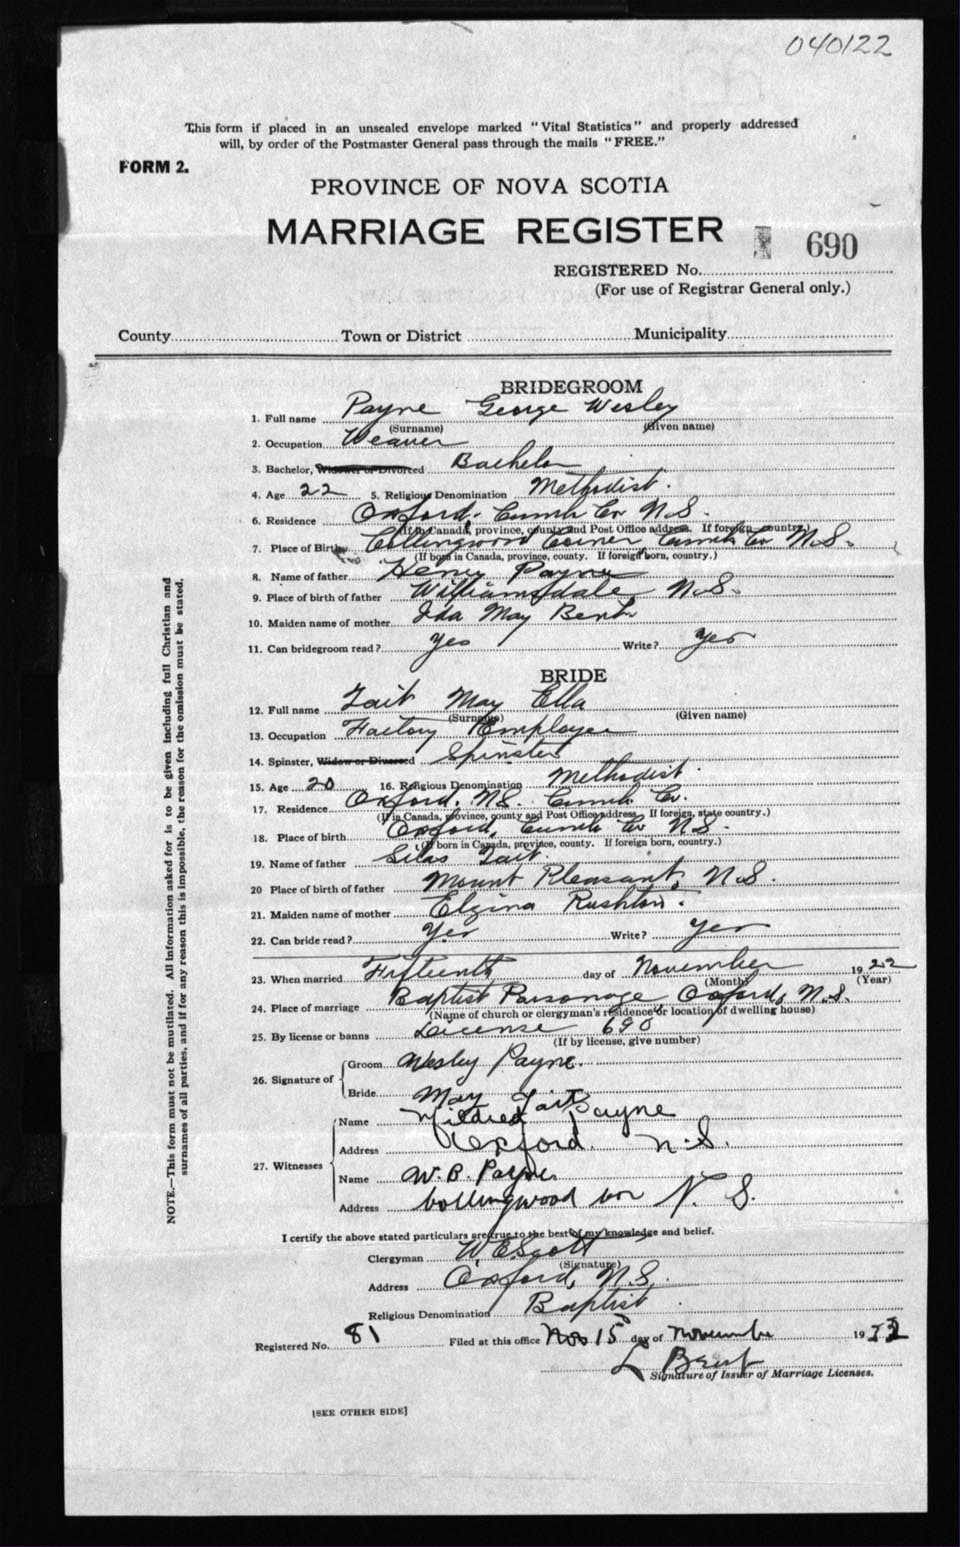 040122
This form if placed in an unsealed envelope marked "Vital Statistics" and properly addressed
will, by order of the Postmaster General pass through the mails "FREE."
FORM 2.
PROVINCE OF NOVA SCOTIA
MARRIAGE REGISTER
690
REGISTERED No.
(For use of Registrar General only.)
County Town or District Municipality
BRIDEGROOM
1. Full name Payne George Wesley
(Surname) (Given name)
2. Occupation Weaver
3. Bachelor, Widower or Divorced Bachelor
4. Age 22 5. Religious Denomination Methodist.
6. Residence Oxford. Cumb Co. N.S.
(If in Canada, province, county and Post Office address. If foreign country.)
7. Place of Birth Collingwood Corner Cumb Co N.S.
(If born in Canada, province, county. If foreign born, country.)
8. Name of father Henry Payne
9. Place of birth of father Williamsdale, N.S.
10. Maiden name of mother Ida May
11. Can bridegroom read? Yes Write? Yes
BRIDE
12. Full name Tait May Ella
(Surname) (Given name)
13. Occupation Factory Employee
14. Spinster, Widow or Divorced Spinster
15. Age 20 16. Religious Denomination Methodist.
17. Residence Oxford, N.S. Cumb Co.
(If in Canada, province, county and Post Office address. If foreign, state country.)
18. Place of birth Oxford, Cumb Co N.S.
(If born in Canada, province, county. If foreign born, country.)
19. Name of father Silas Tait.
20 Place of birth of father Mount Pleasant, N.S.
21. Maiden name of mother Elzina Rushton.
22. Can bride read? Yes Write? Yes
23. When married Fifteenth day of November 1922
(Month) (Year)
24. Place of marriage Baptist Parsonage, Oxford, N.S.
(Name of church or clergyman's residence or location of dwelling house)
25. By license or banns License 690
(If by license, give number)
26. Signature of Groom Wesley Payne.
Bride May Tait
27. Witnesses Name Mildred Payne
Address Oxford. N.S.
Name W. B. Payne
Address Collingwood Cor N. S.
I certify the above stated particulars are true to the best of my knowledge and belief.
Clergyman W. E. Scott
(Signature)
Address Oxford, N.S.
Religious Denomination Baptist
Registered No. 81 Filed at this office Nov 15 day of November 1922
L
Signature of Issuer of Marriage Licenses.
[SEE OTHER SIDE]
NOTE.—This form must not be mutilated. All information asked for is to be given including full Christian and
surnames of all parties, and if for any reason this is impossible, the reason for the omission must be stated.